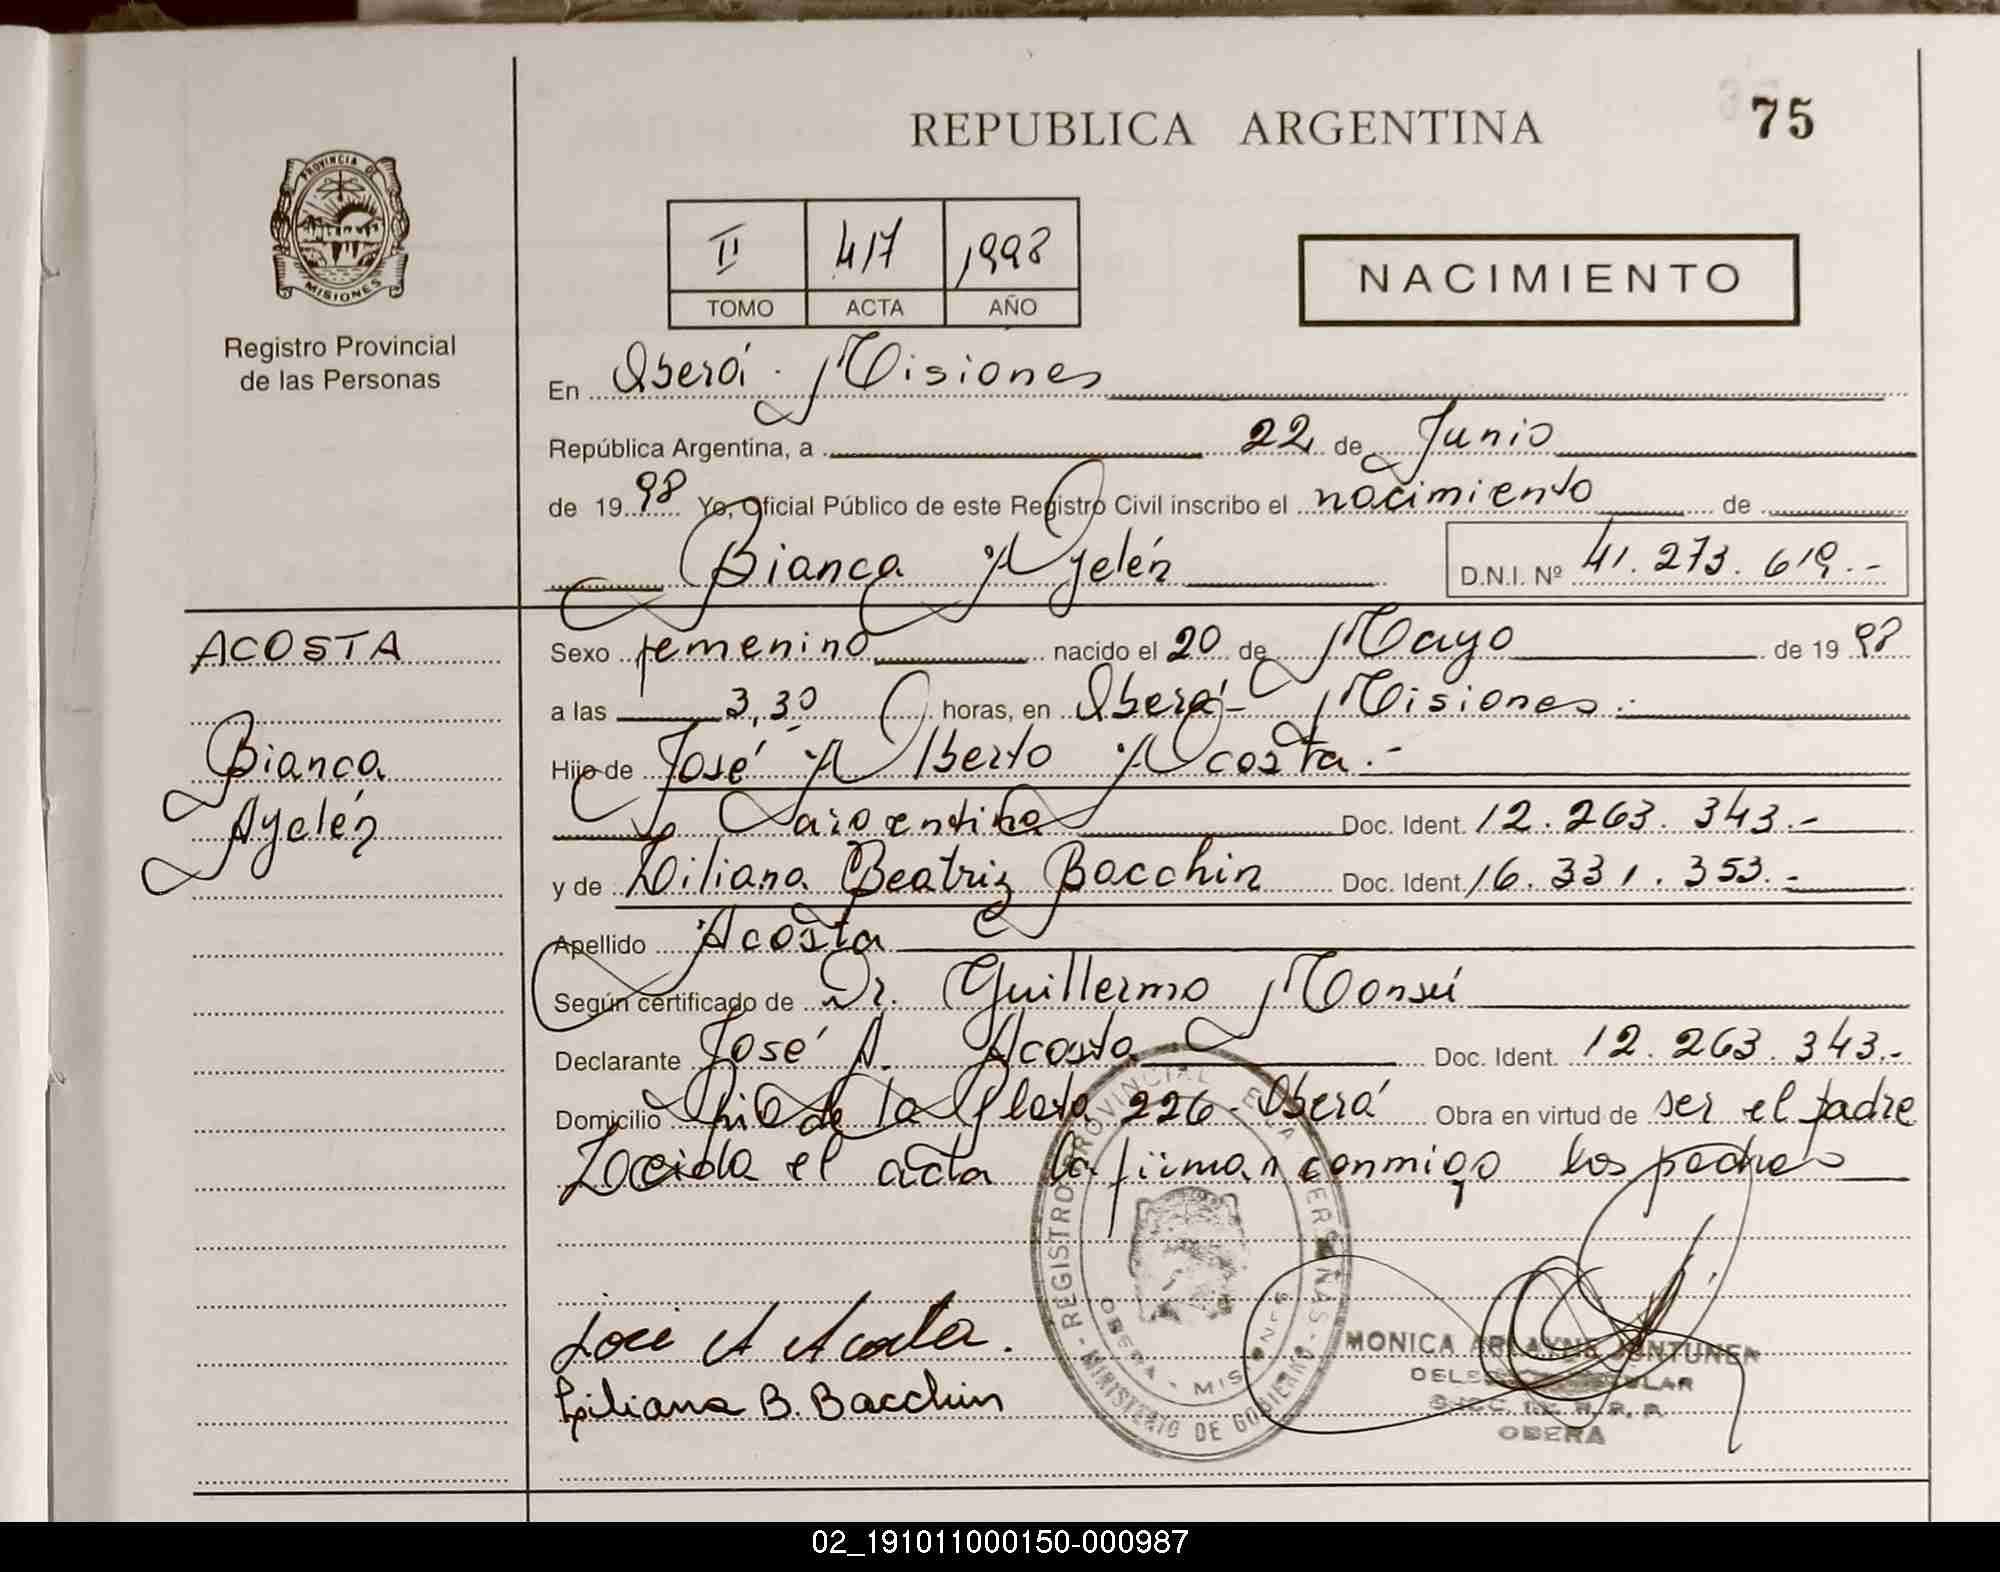 REPUBLICA ARGENTINA
75
PROVINCIA DE
MISIONES
Registro Provincial
de las Personas
II 417 1998
TOMO ACTA AÑO
NACIMIENTO
En Oberá - Misiones
República Argentina, a 22 de Junio
de 1998 Yo, Oficial Público de este Registro Civil inscribo el nacimiento de
Bianca Ayelén D.N.I. Nº 41.273.619.-
ACOSTA
Bianca
Ayelén
Sexo femenino nacido el 20 de Mayo de 1998
a las 3,30 horas, en Oberá - Misiones.-
Hijo de José Alberto Acosta.-
Argentina Doc. Ident. 12.263.343.-
y de Liliana Beatriz Bacchin Doc. Ident. 16.331.353.-
Apellido Acosta
Según certificado de Dr. Guillermo Monsú
Declarante José A. Acosta Doc. Ident. 12.263.343.-
Domicilio Río de la Plata 226 - Oberá Obra en virtud de ser el padre
Leeida el acta la firman conmigo los padres
REGISTRO PROVINCIAL DE LAS PERSONAS - MINISTERIO DE GOBIERNO -
OBERA - MISIONES
José A Acosta.
Liliana B. Bacchin
MONICA
OBERA
02_191011000150-000987